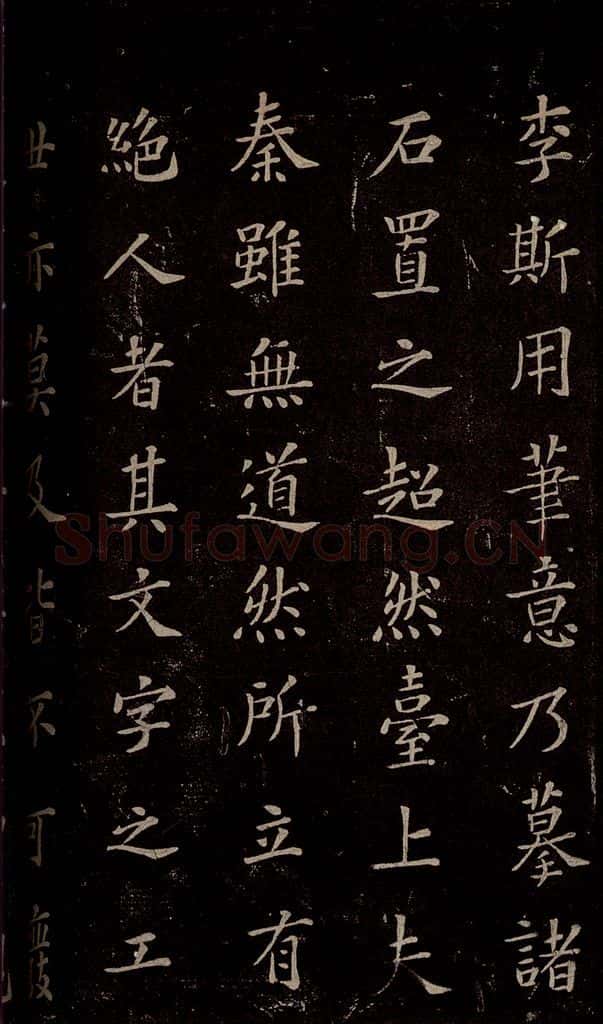 李斯用筆意乃摹諸
石置之超然臺上夫
秦雖無道然所立有
絶人者其文字之工
世亦莫及皆不可廢
Shufawang.CN